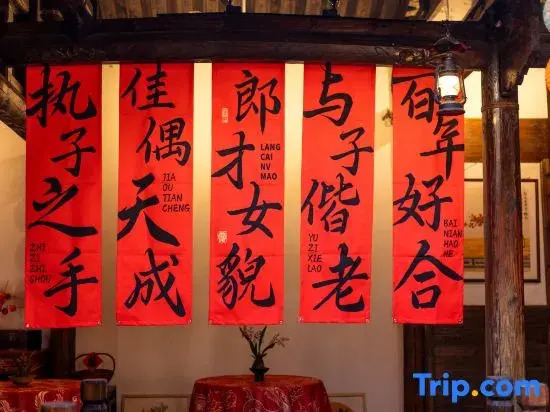 执子之手
ZHI
ZI
ZHI
SHOU
佳偶天成
JIA
OU
TIAN
CHENG
郎才女貌
LANG
CAI
NV
MAO
与子偕老
YU
ZI
XIE
LAO
百年好合
BAI
NIAN
HAO
HE
Trip.com